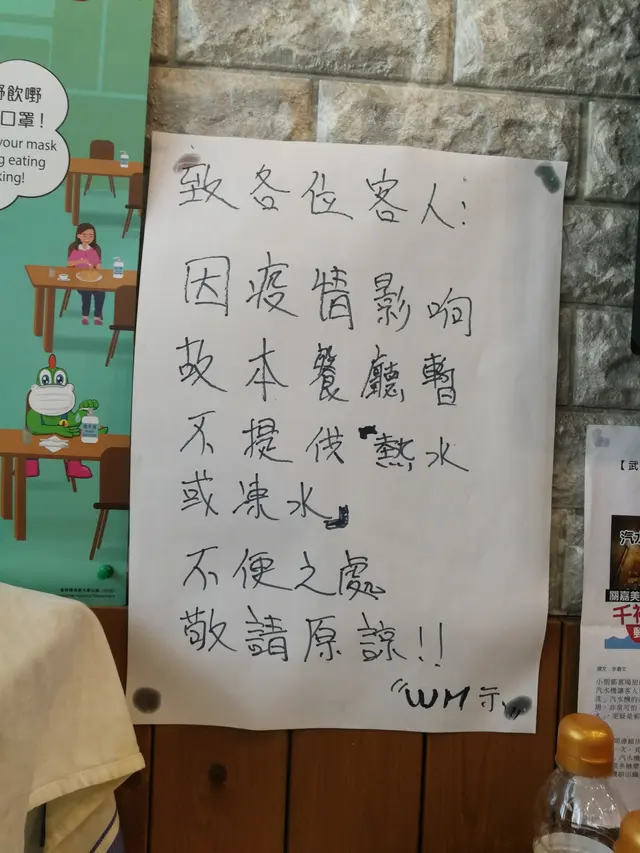 飲嘢
口罩！
your mask
g eating
king!
致各位客人：
因疫情影响
故本餐廳暫
不提供「熱水
或凍水」
不便之處
敬請原諒!!
"WM示"
【武
汽水
關嘉美
千